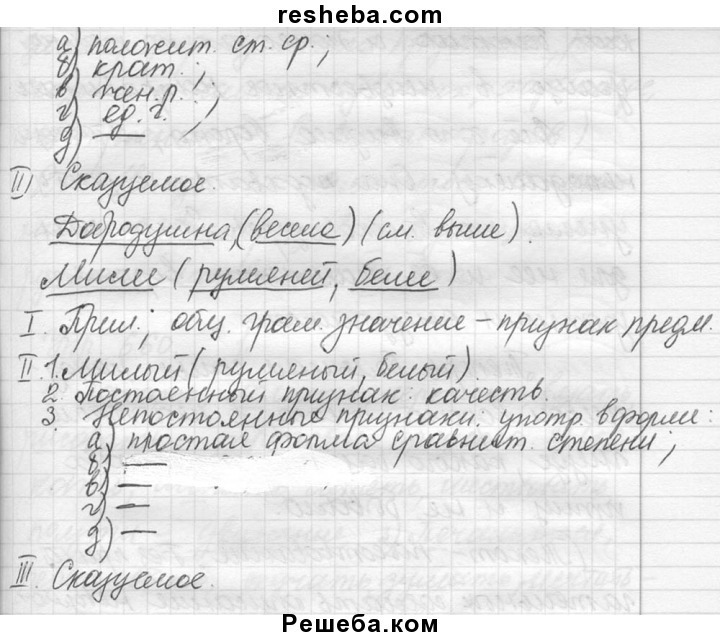 resheba.com
а) положит. ст. ср.;
б) крат.;
в) жен. р.;
г) ед. ч.;
д) —
II) Сказуемое.
Добродушна, (весела) (см. выше).
Милее (румяней, белее)
I. Прил.; общ. грам. значение – признак предм.
II 1. Милый (румяный, белый)
2. Постоянный признак: качеств.
3. Непостоянные признаки: употр. в форме:
а) простая форма сравнит. степени;
б) —
в) —
г) —
д) —
III. Сказуемое.
Решеба.ком